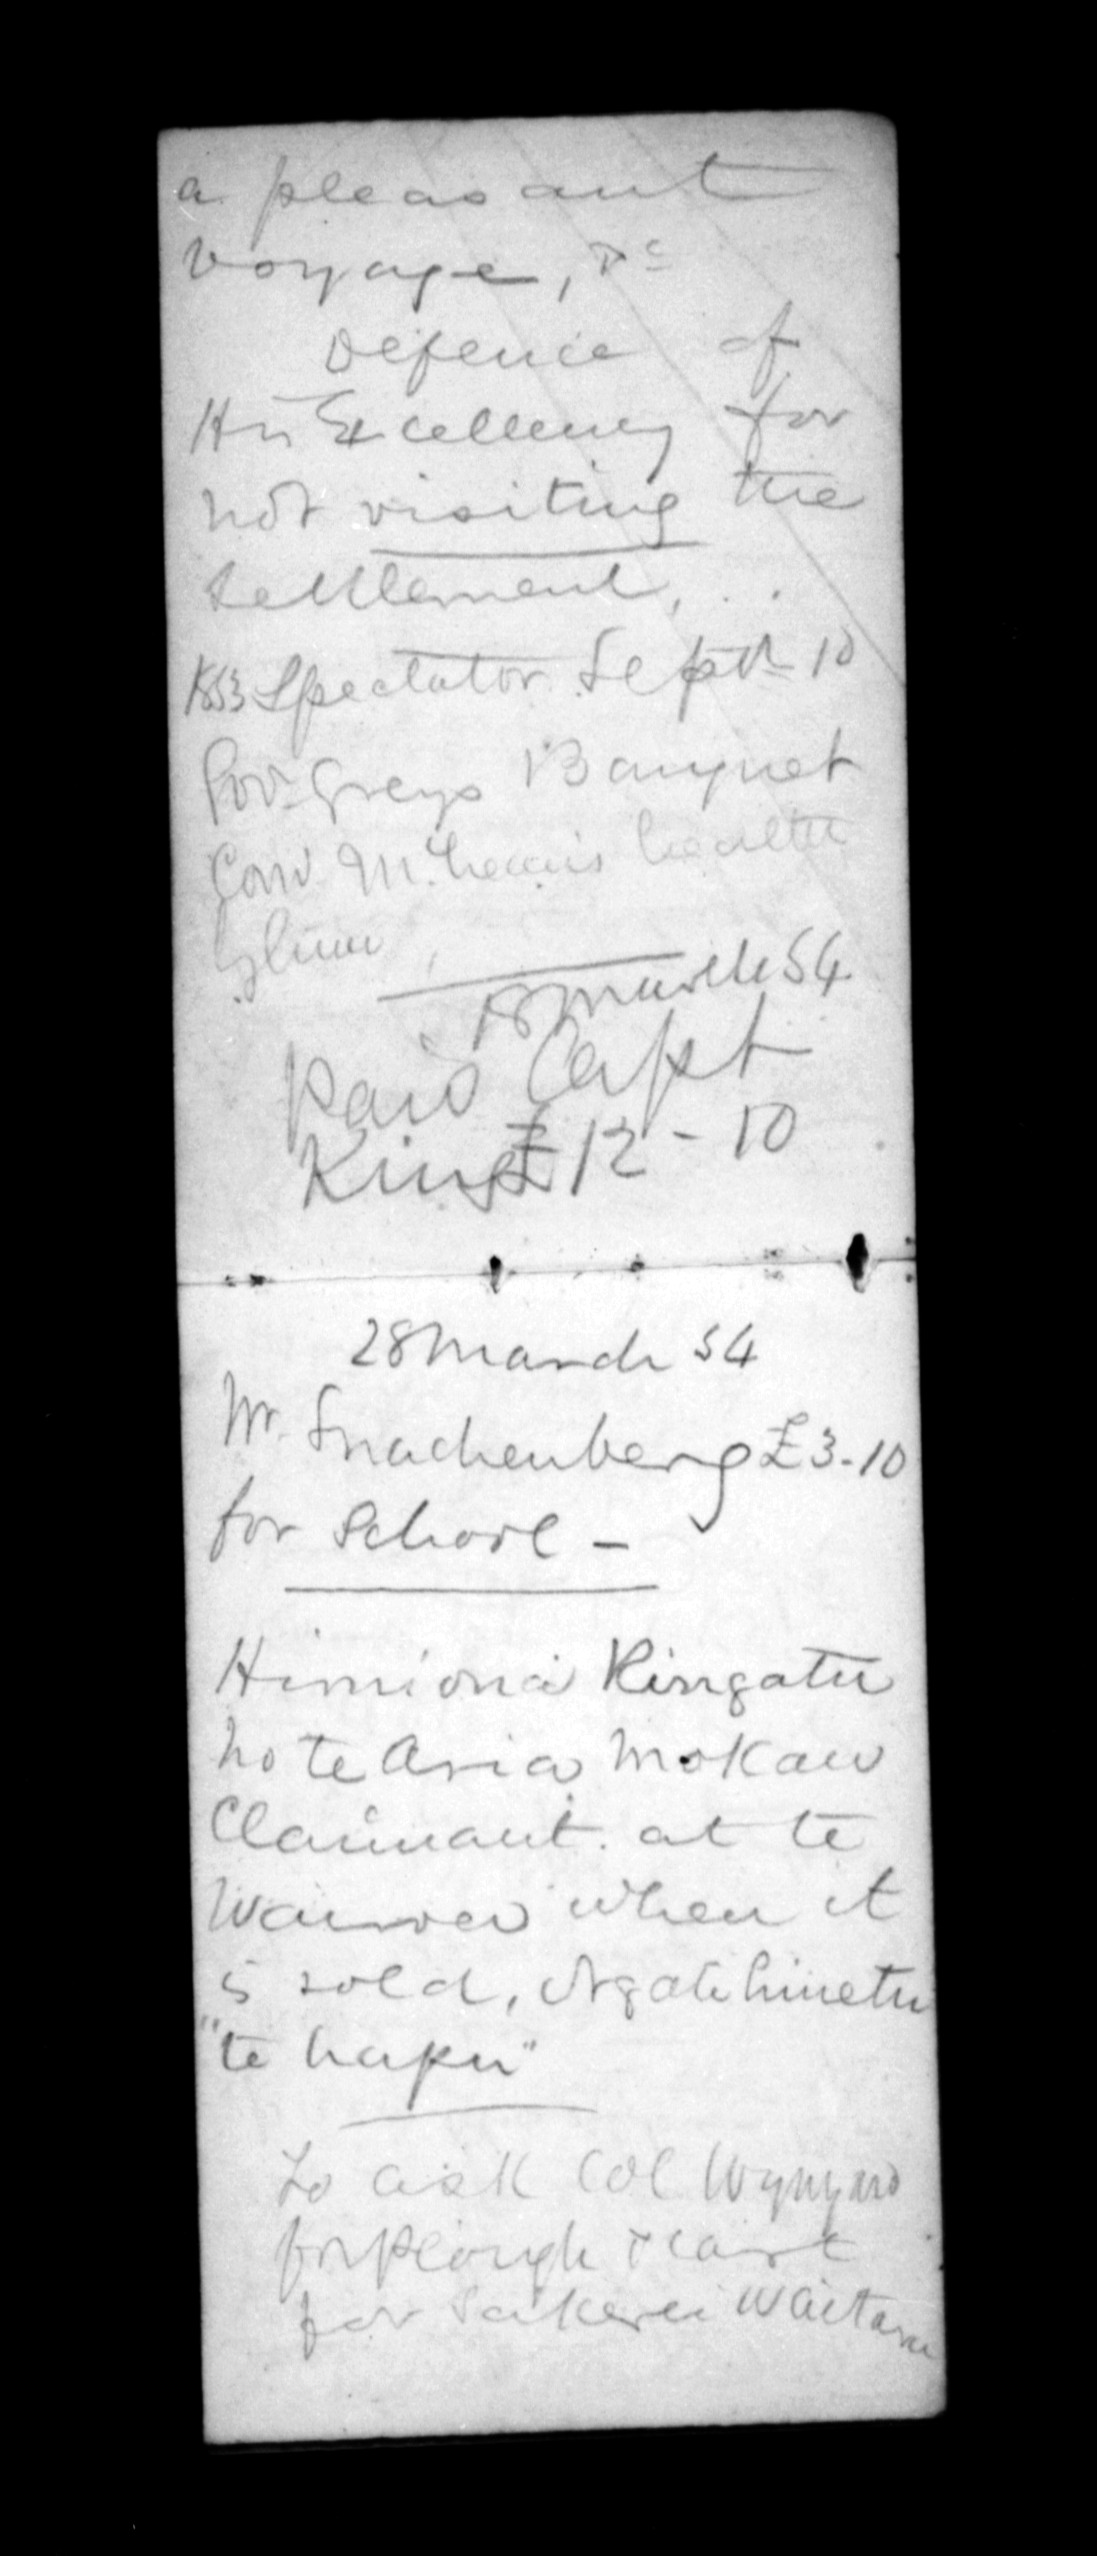 a pleasant
voyage, &c
Defence of
His Excellency for
not visiting the
settlement, . .
1853 Spectator Septr 10
Govr Greys Banquet
Con. McLean's health
by him,
18 March 54
Paid Capt
King £12-10
28 March 54
Mr. Snachenberg £3-10
for School -
Himiona Ringatu
no te Aria Mokau
Claimant at te
Wairoa when it
is sold, Ngatihinetu
"te hapu"
To ask Col Wynyard
for plough & cart
for Waitara